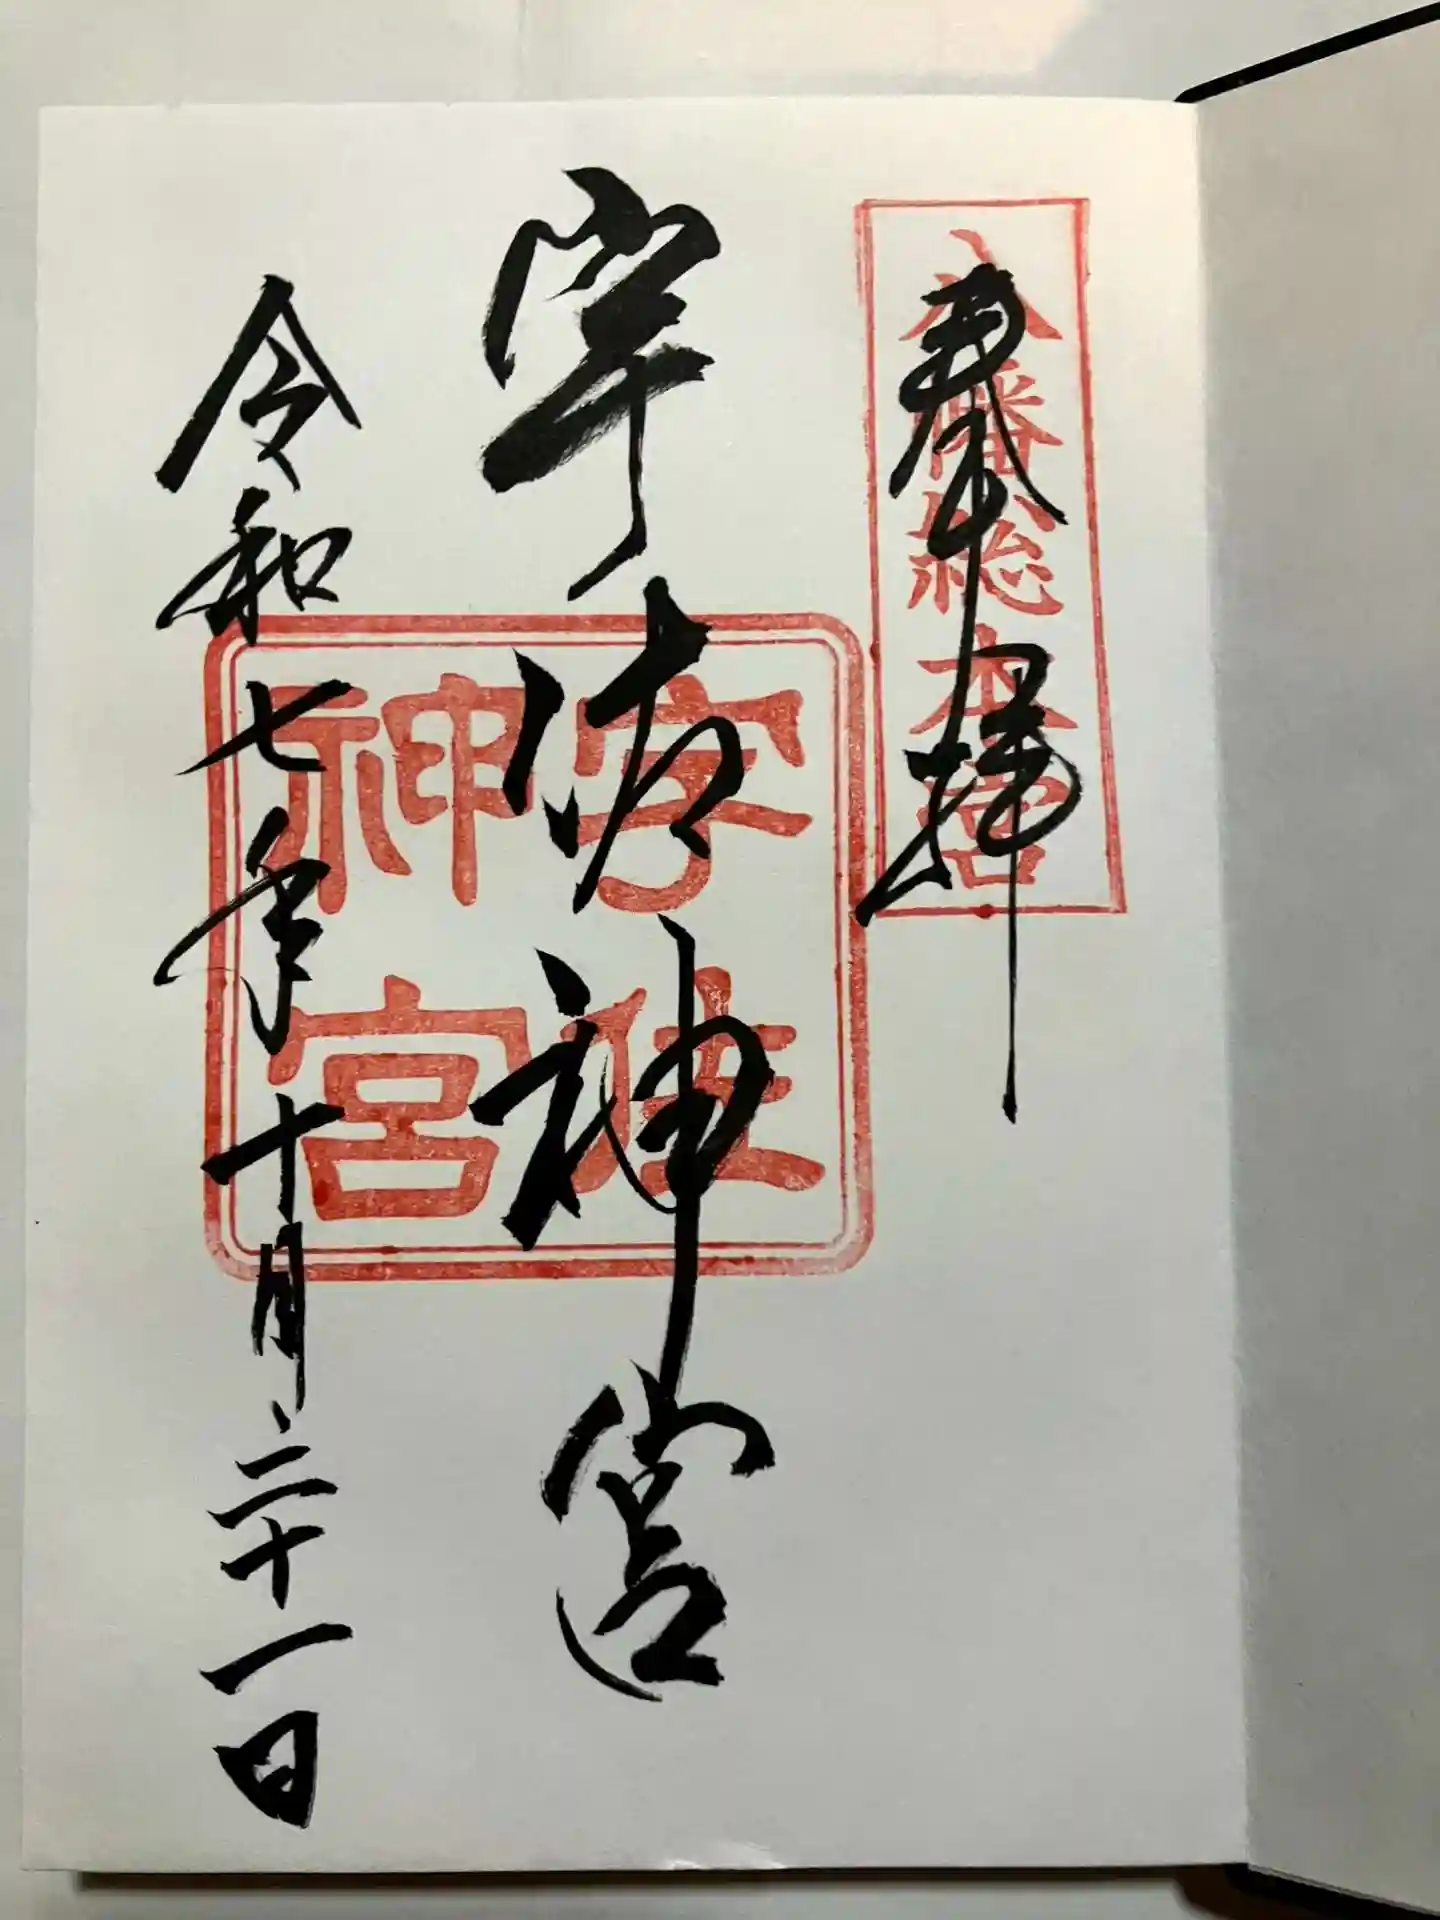 奉拝
八幡総本宮
宇佐神宮
宇佐
神宮
令和七年十月二十一日